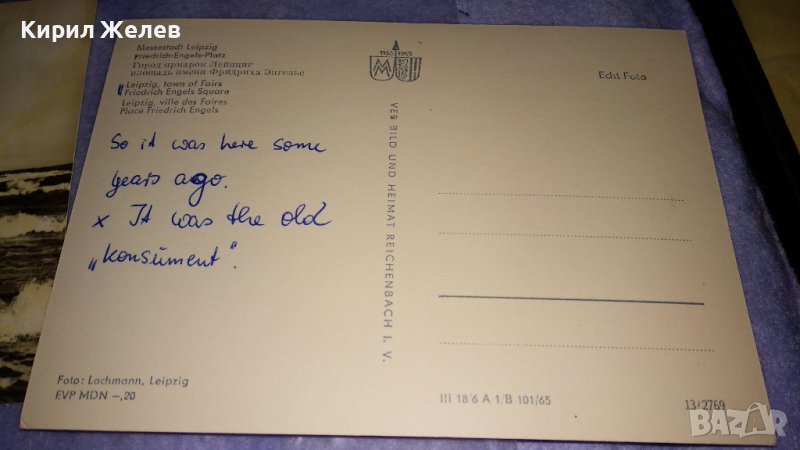 Кирил Желев
Messestadt Leipzig
Friedrich-Engels-Platz
Город ярмарок Лейпциг
площадь имени Фридриха Энгельс
Leipzig, town of Fairs
Friedrich Engels Square
Leipzig, ville des Foires
Place Friedrich Engels
So it was here some
years ago.
x It was the old
„konsument".
Foto: Lachmann, Leipzig
EVP MDN –,20
1165 1965
MM
VEB BILD UND HEIMAT REICHENBACH I. V.
Echt Foto
III 18/6 A 1/B 101/65
13/2769
BAZAR